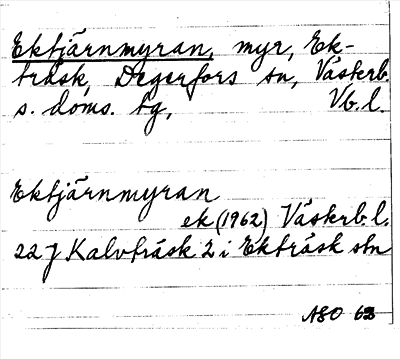 Ektjärnmyran, myr, Ek-
träsk, Degerfors sn, Västerb.
s. doms. tg, Vb. l.
Ektjärnmyran
ek (1962) Västerb. l.
22 J Kalvträsk 2 i Ekträsk stn
ASO 63